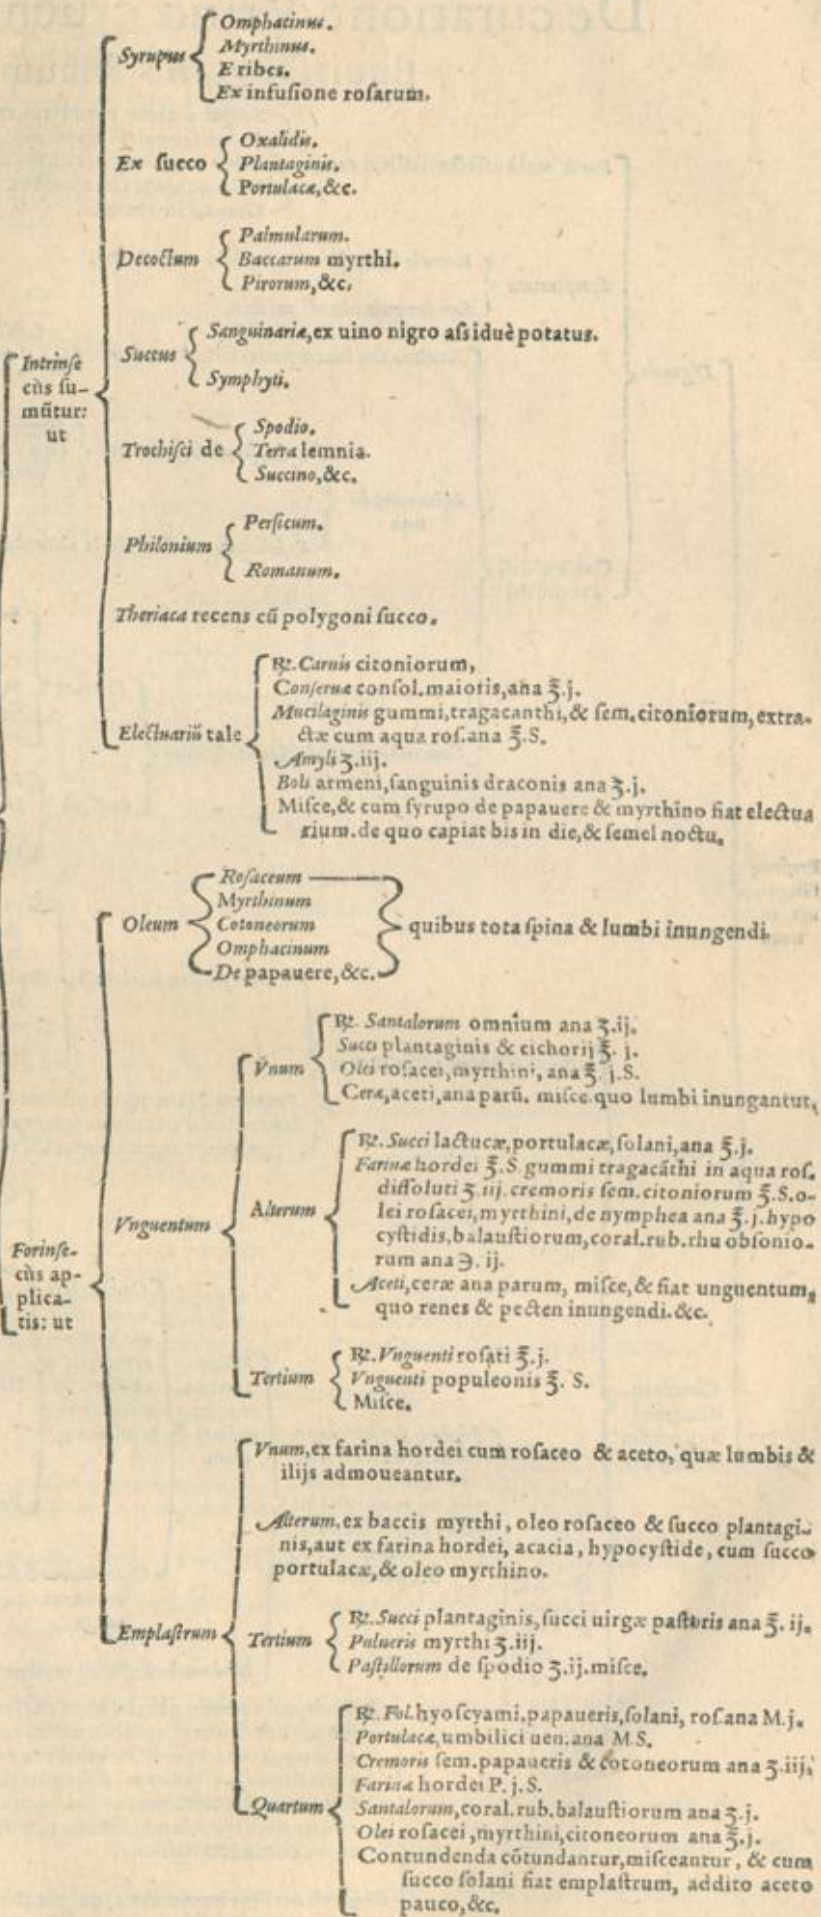 Syrupus
Omphacinus.
Myrthinus.
E ribes.
Ex infusione rosarum.
Ex succo
Oxalidis.
Plantaginis.
Portulacæ,&c.
Decoctum
Palmularum.
Baccarum myrthi.
Pirorum,&c.
Intrinse
cùs su-
mūtur:
ut
Succus
Sanguinariæ,ex uino nigro assiduè potatus.
Symphyti.
Trochisci de
Spodio.
Terra lemnia.
Succino,&c.
Philonium
Persicum.
Romanum.
Theriaca recens cū polygoni succo.
Electuariū tale
℞. Carnis citoniorum,
Conseruæ consol.maioris,ana ℥.j.
Mucilaginis gummi,tragacanthi,& sem.citoniorum,extra-
ctæ cum aqua ros.ana ℥.S.
Amyli ʒ.iij.
Boli armeni,sanguinis draconis ana ʒ.j.
Misce,& cum syrupo de papauere & myrthino fiat electua
rium.de quo capiat bis in die,& semel noctu.
Forinse-
cùs ap-
plica-
tis: ut
Oleum
Rosaceum
Myrthinum
Cotoneorum
Omphacinum
De papauere,&c.
quibus tota spina & lumbi inungendi.
Vnguentum
Vnum
℞. Santalorum omnium ana ʒ.ij.
Succi plantaginis & cichorij ℥. j.
Olei rosacei,myrthini, ana ℥. j.S.
Ceræ,aceti,ana parū. misce.quo lumbi inungantur.
Alterum
℞. Succi lactucæ,portulacæ,solani,ana ℥.j.
Farinæ hordei ℥.S.gummi tragacāthi in aqua ros.
dissoluti ʒ.iij.cremoris sem.citoniorum ℥.S.o-
lei rosacei,myrthini,de nymphea ana ℥.j.hypo
cystidis,balaustiorum,coral.rub.rhu obsonio-
rum ana ℈. ij.
Aceti,ceræ ana parum, misce,& fiat unguentum,
quo renes & pecten inungendi.&c.
Tertium
℞. Vnguenti rosati ℥.j.
Vnguenti populeonis ℥. S.
Misce.
Emplastrum
Vnum,ex farina hordei cum rosaceo & aceto, quæ lumbis &
ilijs admoueantur.
Alterum.ex baccis myrthi, oleo rosaceo & succo plantagi-
nis,aut ex farina hordei, acacia, hypocystide, cum succo
portulacæ,& oleo myrthino.
Tertium
℞. Succi plantaginis,succi uirgæ pastoris ana ℥. ij.
Pulueris myrthi ʒ.iij.
Pastillorum de spodio ʒ.ij.misce.
Quartum
℞. Fol.hyoscyami,papaueris,solani, ros.ana M.j.
Portulacæ,umbilici uen.ana M.S.
Cremoris sem.papaueris & cotoneorum ana ʒ.iij.
Farinæ hordei P.j.S.
Santalorum,coral.rub.balaustiorum ana ʒ.j.
Olei rosacei,myrthini,citoneorum ana ℥.j.
Contundenda cōtundantur,misceantur, & cum
succo solani fiat emplastrum, addito aceto
pauco,&c.